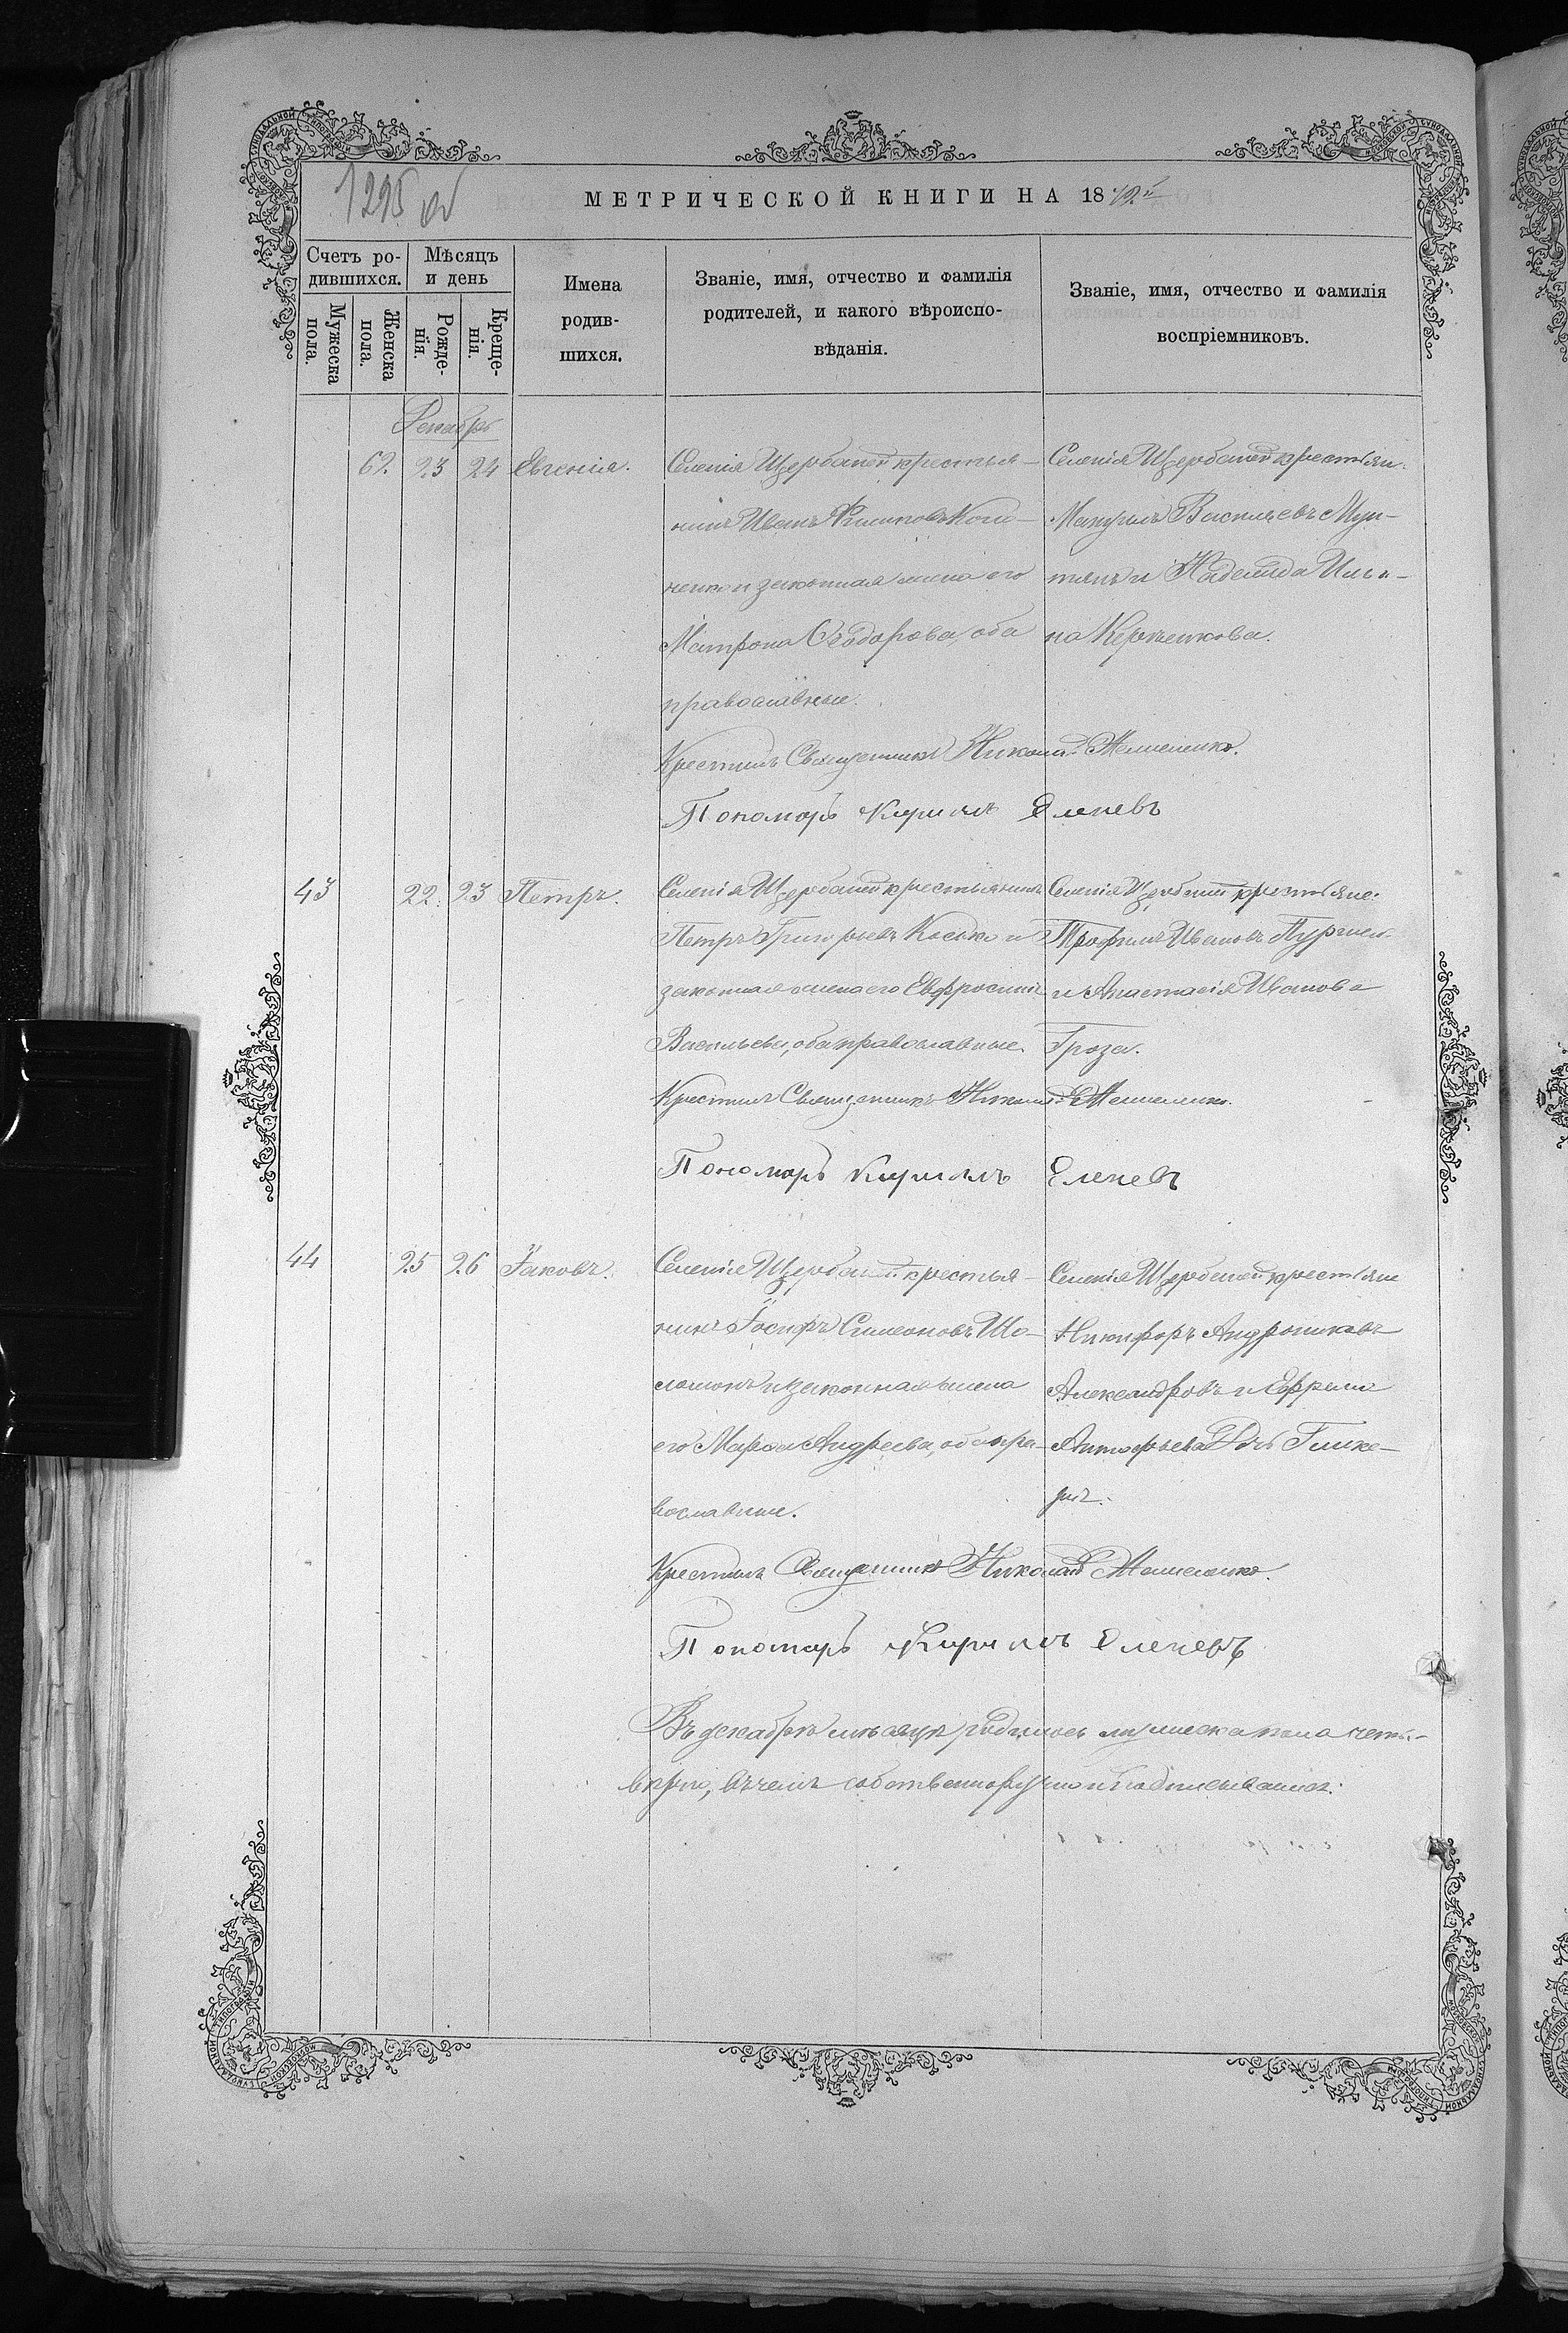 1295 об
МЕТРИЧЕСКОЙ КНИГИ НА 18
Счетъ ро-
дившихся.
Мѣсяцъ
и день
Мужеска
пола.
Женска
пола.
Рожде-
нія.
Креще-
нія.
Имена
родив-
шихся.
Званіе, имя, отчество и фамилія
родителей, и какого вѣроиспо-
вѣданія.
Званіе, имя, отчество и фамилія
воспріемниковъ.
Декабрь
62. 23 24 Евгенія.
Селенія Щербаней крестья-
нинъ Иванъ
и законная жена его
Матрона Ѳеодорова, оба
православные.
Селенія Щербаней крестьян.
Васильевъ Мун-
тянъ и Надежда Ильи-
на
Крестилъ Священникъ Николай
Пономарь Кирилъ Еленевъ
43 22. 23 Петръ.
Селенія Щербаней крестьянинъ
Петръ Григорьевъ Косько и
законная жена его Евфросинія
Васильева, оба православные.
Селенія Щербаней крестьяне.
Трофимъ Ивановъ
и Анастасія Иванова
Гроза.
Крестилъ Священникъ Николай
Пономарь Кирилъ Еленевъ
44 25 26 Іаковъ.
Селенія Щербаней крестья-
нинъ Іосифъ Симеоновъ
и законная жена
его Марѳа Андреева, оба пра-
вославные.
Селенія Щербаней крестьяне
Никифоръ Андрониковъ
Александровъ и
Крестилъ Священникъ Николай
Пономарь Кирилъ Еленевъ
Въ декабрѣ мѣсяцѣ родилось мужеска пола четы-
въ чемъ собственноручно и подписываемся: